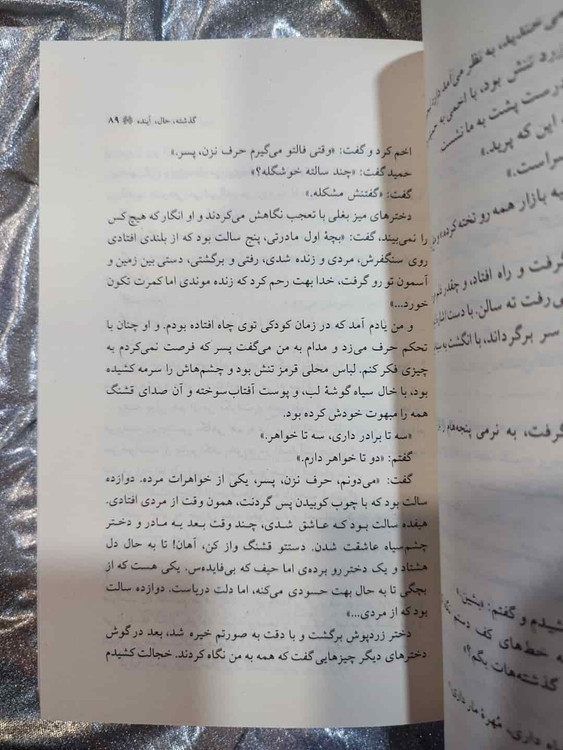 گذشته، حال، آینده ۸۹
اخم کرد و گفت: «وقتی فالتو می‌گیرم حرف نزن، پسر.»
حمید گفت: «چند سالته خوشگله؟»
گفت: «گفتنش مشکله.»
دخترهای میز بغلی با تعجب نگاهش می‌کردند و او انگار که هیچ‌کس
را نمی‌بیند، گفت: «بچهٔ اول مادرتی، پنج سالت بود که از بلندی افتادی
روی سنگفرش، مردی و زنده شدی، رفتی و برگشتی، دستی بین زمین و
آسمون تو رو گرفت، خدا بهت رحم کرد که زنده موندی اما کمرت تکون
خورد...»
و من یادم آمد که در زمان کودکی توی چاه افتاده بودم. و او چنان با
تحکم حرف می‌زد و مدام به من می‌گفت پسر که فرصت نمی‌کردم به
چیزی فکر کنم. لباس محلی قرمز تنش بود و چشم‌هاش را سرمه کشیده
بود، با خال سیاه گوشهٔ لب، و پوست آفتاب‌سوخته و آن صدای قشنگ
همه را مبهوت خودش کرده بود.
«سه تا برادر داری، سه تا خواهر.»
گفتم: «دو تا خواهر دارم.»
گفت: «می‌دونم، حرف نزن، پسر، یکی از خواهرات مرده. دوازده
سالت بود که با چوب کوبیدن پس گردنت، همون وقت از مردی افتادی.
هیفده سالت بود که عاشق شدی، چند وقت بعد یه مادر و دختر
چشم‌سیاه عاشقت شدن. دستتو قشنگ واز کن، آهان! تا به حال دل
هشتاد و یک دختر رو برده‌ی اما حیف که بی‌فایده‌س. یکی هست که از
بچگی تا به حال بهت حسودی می‌کنه، اما دلت دریاست. دوازده سالت
بود که از مردی...»
دختر زردپوش برگشت و با دقت به صورتم خیره شد، بعد در گوش
دخترهای دیگر چیزهایی گفت که همه به من نگاه کردند. خجالت کشیدم
می‌خندید، به نظر می‌آمد
زرد تنش بود، با اخمی به
درست پشت به ما نشست
این که پرید.»
سراست.»
یه بازار همه رو تخته کرده
گرفت و راه افتاد، و چقدر
می‌رفت ته سالن. با دست
سر برگرداند، با انگشت به
گرفت، به نرمی پنجه‌هام را
کشیدم و گفتم: «بشین
به خط‌های کف دستم
گذشته‌هات بگم؟»
داری، مُهرهٔ مار داری